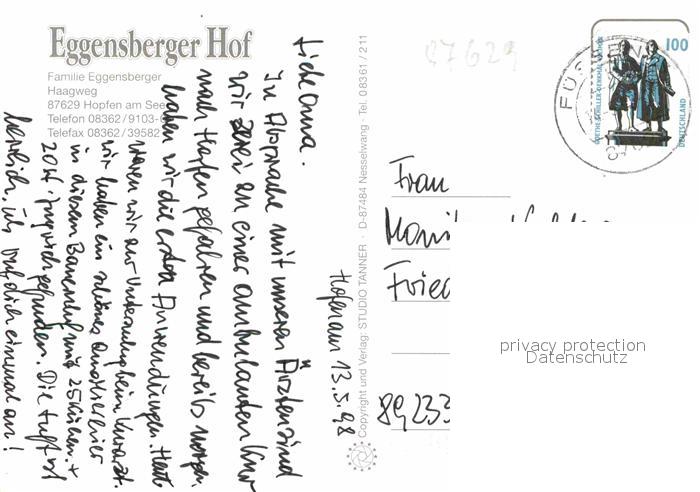 Eggensberger Hof
Familie Eggensberger
Haagweg
87629 Hopfen am See
Telefon 08362/9103-0
Telefax 08362/39582
Hopfen am 13.5.98
Liebe Oma.
In Absprache mit unseren Ärzten sind
wir zwei an einer ambulanten Kur
nach Hopfen gefahren und bereits morgen
haben wir die ersten Anwendungen. Heute
waren wir zur Untersuchung beim Kurarzt.
Wir haben ein schönes Quartier hier
in diesem Bauernhof mit 25 Kühen +
20 . Jungvieh gefunden. Die Luft ist
herrlich, ich ruf dich einmal an!
Copyright und Verlag: STUDIO TANNER · D-87484 Nesselwang · Tel. 08361/211
87629
FÜSSEN
GOETHE-SCHILLER-DENKMAL WEIMAR
100
DEUTSCHLAND
Frau
Moni
Fried
89233
privacy protection
Datenschutz